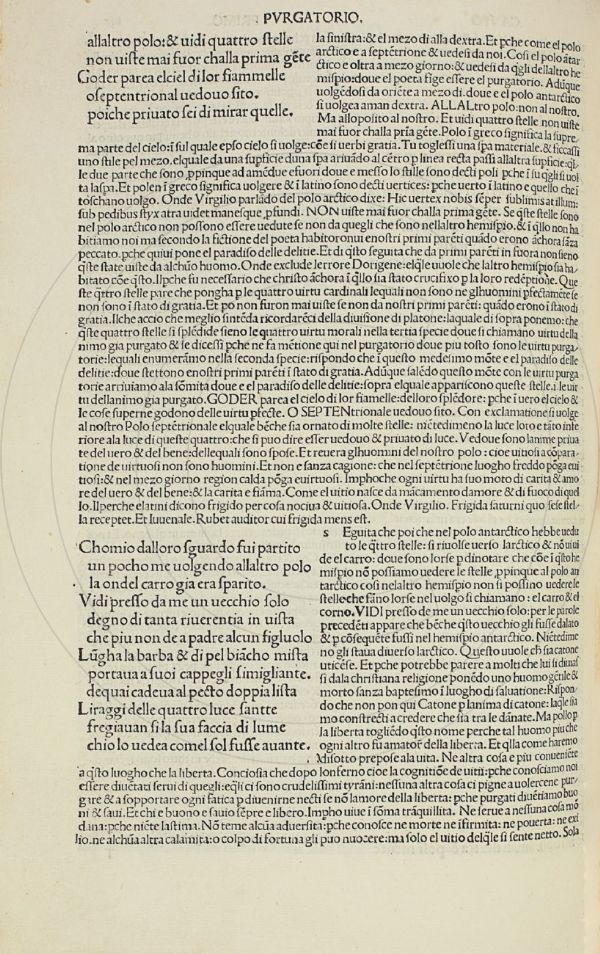 PVRGATORIO.
allaltro polo: & uidi quattro stelle
non uiste mai fuor challa prima gẽte
Goder parea elciel di lor fiammelle
o septentrional uedouo sito.
poiche priuato sei di mirar quelle.
la sinistra: & el mezo di alla dextra. Et pche come el polo
arctico e a septẽtrione & uedesi da noi. Cosi el polo ãtar
ctico e oltra a mezo giorno: & uedesi da qgli dellaltro he
mispio: doue el poeta fige essere el purgatorio. Adũque
uolgẽdosi da oriente uerso mezo di: doue e el polo antarctico
si uolgea aman dextra. ALLALtro polo: non al nostro.
Ma alloposito al nostro. Et uidi quattro stelle non uiste
mai fuor challa prĩa gẽte. Polo ĩ greco significa la supre
ma parte del cielo: ĩ sul quale epso cielo si uolge: cõe si uerbi gratia. Tu toglessi una spa materiale. & ficcassi
uno stile pel mezo. elquale da una supficie duna spa ariuãdo al cẽtro p linea recta passi allaltra supficie: ql
le due parte che sono ppinque ad amẽdue efuori doue e messo lo stile sono decti poli pche ĩ su qgli si uol
ta laspa. Et polen ĩ greco significa uolgere & ĩ latino sono decti uertices: pche uerto ĩ latino e quello che ĩ
toschano uolgo. Onde Virgilio parlãdo del polo arctico dixe: Hic uertex nobis sẽper sublimis at illum:
sub pedibus styx atra uidet manesque pfundi. NON uiste mai fuor challa prima gẽte. Se qste stelle sono
nel polo arctico non possono essere uedute se non da quegli che sono nellaltro hemispio. & ĩ qllo non ha
bitiamo noi ma secondo la fictione del poeta habitoron ui enostri primi parẽti quãdo erono ãchora sãza
peccato. pche quiui pone el paradiso delle delitie. Et di qsto seguita che da primi parẽti in fuora non sieno
qste state uiste da alchuo huomo. Onde exclude lerrore Dorigene: elqle uuole che laltro hemispio sia ha
bitato cõe qsto. Ilpche fu necessario che christo ãchora ĩ qllo sia stato crucifixo p la loro redẽptione. Que
ste qttro stelle pare che pongha p le quattro uirtu cardinali lequali non sono ne glhuomini pfectamẽte se
non sono ĩ stato di gratia. Et po non furon mai uiste se non da nostri primi parẽti: quãdo erono ĩ stato di
gratia. Ilche accio che meglio sintẽda ricordarẽci della diuisione di platone: laquale di sopra ponemo: che
qste quattro stelle si splẽdide sieno le quattro uirtu morali nella tertia specie doue si chiamano uirtu della
nimo gia purgato & se dicessi pche ne fa mẽtione qui nel purgatorio doue piu tosto sono le uirtu purga
torie: lequali enumerãmo nella seconda specie: rispondo che ĩ questo medesimo mõte e el paradiso delle
delitie: doue stettono enostri primi parẽti ĩ stato di gratia. Adũque salẽdo questo mõte con le uirtu purga
torie arriuiamo ala sõmita doue e el paradiso delle delitie: sopra elquale appariscono queste stelle. i. le uir
tu dellanimo gia purgato. GODER parea el cielo di lor fiamelle: dello ro splẽdore: pche ĩ uero el cielo &
le cose superne godono delle uirtu pfecte. O SEPTENtrionale uedouo sito. Con exclamatione si uolge
al nostro Polo septẽtrionale elquale bẽche sia ornato di molte stelle: niẽtedimeno la luce loro e tãto infe
riore ala luce di queste quattro: che si puo dire esser uedouo & priuato di luce. Vedoue sono lanime priua
te del uero & del bene: dellequali sono spose. Et reuera glhuomini del nostro polo: cioe uitiosi a cõpara
tione de uirtuosi non sono huomini. Et non e sanza cagione: che nel septẽtrione luogho freddo põga e ui
tiosi: & nel mezo giorno region calda põga e uirtuosi. Imphoche ogni uirtu ha suo moto di carita & amo
re del uero & del bene: & la carita e fiãma. Come el uitio nasce da mãcamento damore & di fuoco di quel
lo. Ilperche e latini dicono frigido per cosa nociua & uitiosa. Onde Virgilio. Frigida saturni quo sese stel
la receptet. Et Iuuenale. Rubet auditor cui frigida mens est.
Chomio dalloro sguardo fui partito
un pocho me uolgendo allaltro polo
la ondel carro gia era sparito.
Vidi presso da me un uecchio solo
degno di tanta riuerentia in uista
che piu non de a padre alcun figluolo
Lũgha la barba & di pel biãcho mista
portaua a suoi cappegli simigliante.
dequai cadeua al pecto doppia lista
Li raggi delle quattro luce sancte
fregiauan si la sua faccia di lume
chio lo uedea comel sol fusse auante.
s Eguita che poi che nel polo antarctico hebbe uedu
to le qttro stelle: si riuolse uerso larctico & nõ ui ui
de el carro: doue sono lorse p dinotare che cõe ĩ qsto he
mispio nõ possiamo uedere le stelle, ppinque al polo an
tarctico cosi nelaltro hemispio non si possino uedere le
stelle che fãno lorse nel uolgo si chiamano: el carro & el
corno. VIDI presso de me un uecchio solo: per le parole
precedẽti appare che bẽche qsto uecchio gli fusse dalato
& p cõsequẽte fussi nel hemispio antarctico. Niẽtedime
no gli staua diuerso larctico. Questo uuole che sia catone
uticẽse. Et pche potrebbe parere a molti che lui si diuias
si dala christiana religione ponẽdo uno huomo gẽtile &
morto sanza baptesimo ĩ luogho di saluatione: Rispon
do che non pon qui Catone p lanima di catone: laqle sia
mo constrecti a credere che sia tra le dãnate. Ma pollo p
la liberta togliẽdo qsto nome perche tal huomo piu che
ogni altro fu amatore della liberta. Et qlla come haremo
disotto prepose ala uita. Ne altra cosa e piu conueniẽte
a qsto luogho che la liberta. Conciosia che dopo lonferno cioe la cognitiõe de uitii: pche conosciamo noi
essere diuẽtati serui di quegli: eqli ci sono crudelissimi tyrãni: nessuna altra cosa ci pigne a uolercene pur
gare & a sopportare ogni fatica p diuenirne necti se nõ lamore della liberta: pche purgati diuẽtiamo buo
ni & saui. Et chi e buono e sauio sẽpre e libero. Impho uiue ĩ sõma trãquillita. Ne serue a nessuna cosa mõ
dana: pche niẽte lastima. Nõ teme alcũa aduersita: pche conosce ne morte ne ĩfirmita: ne pouerta: ne exi
lio. ne alchũa altra calamita: o colpo di fortuna gli puo nuocere: ma solo el uitio delqle si sente netto. Sola